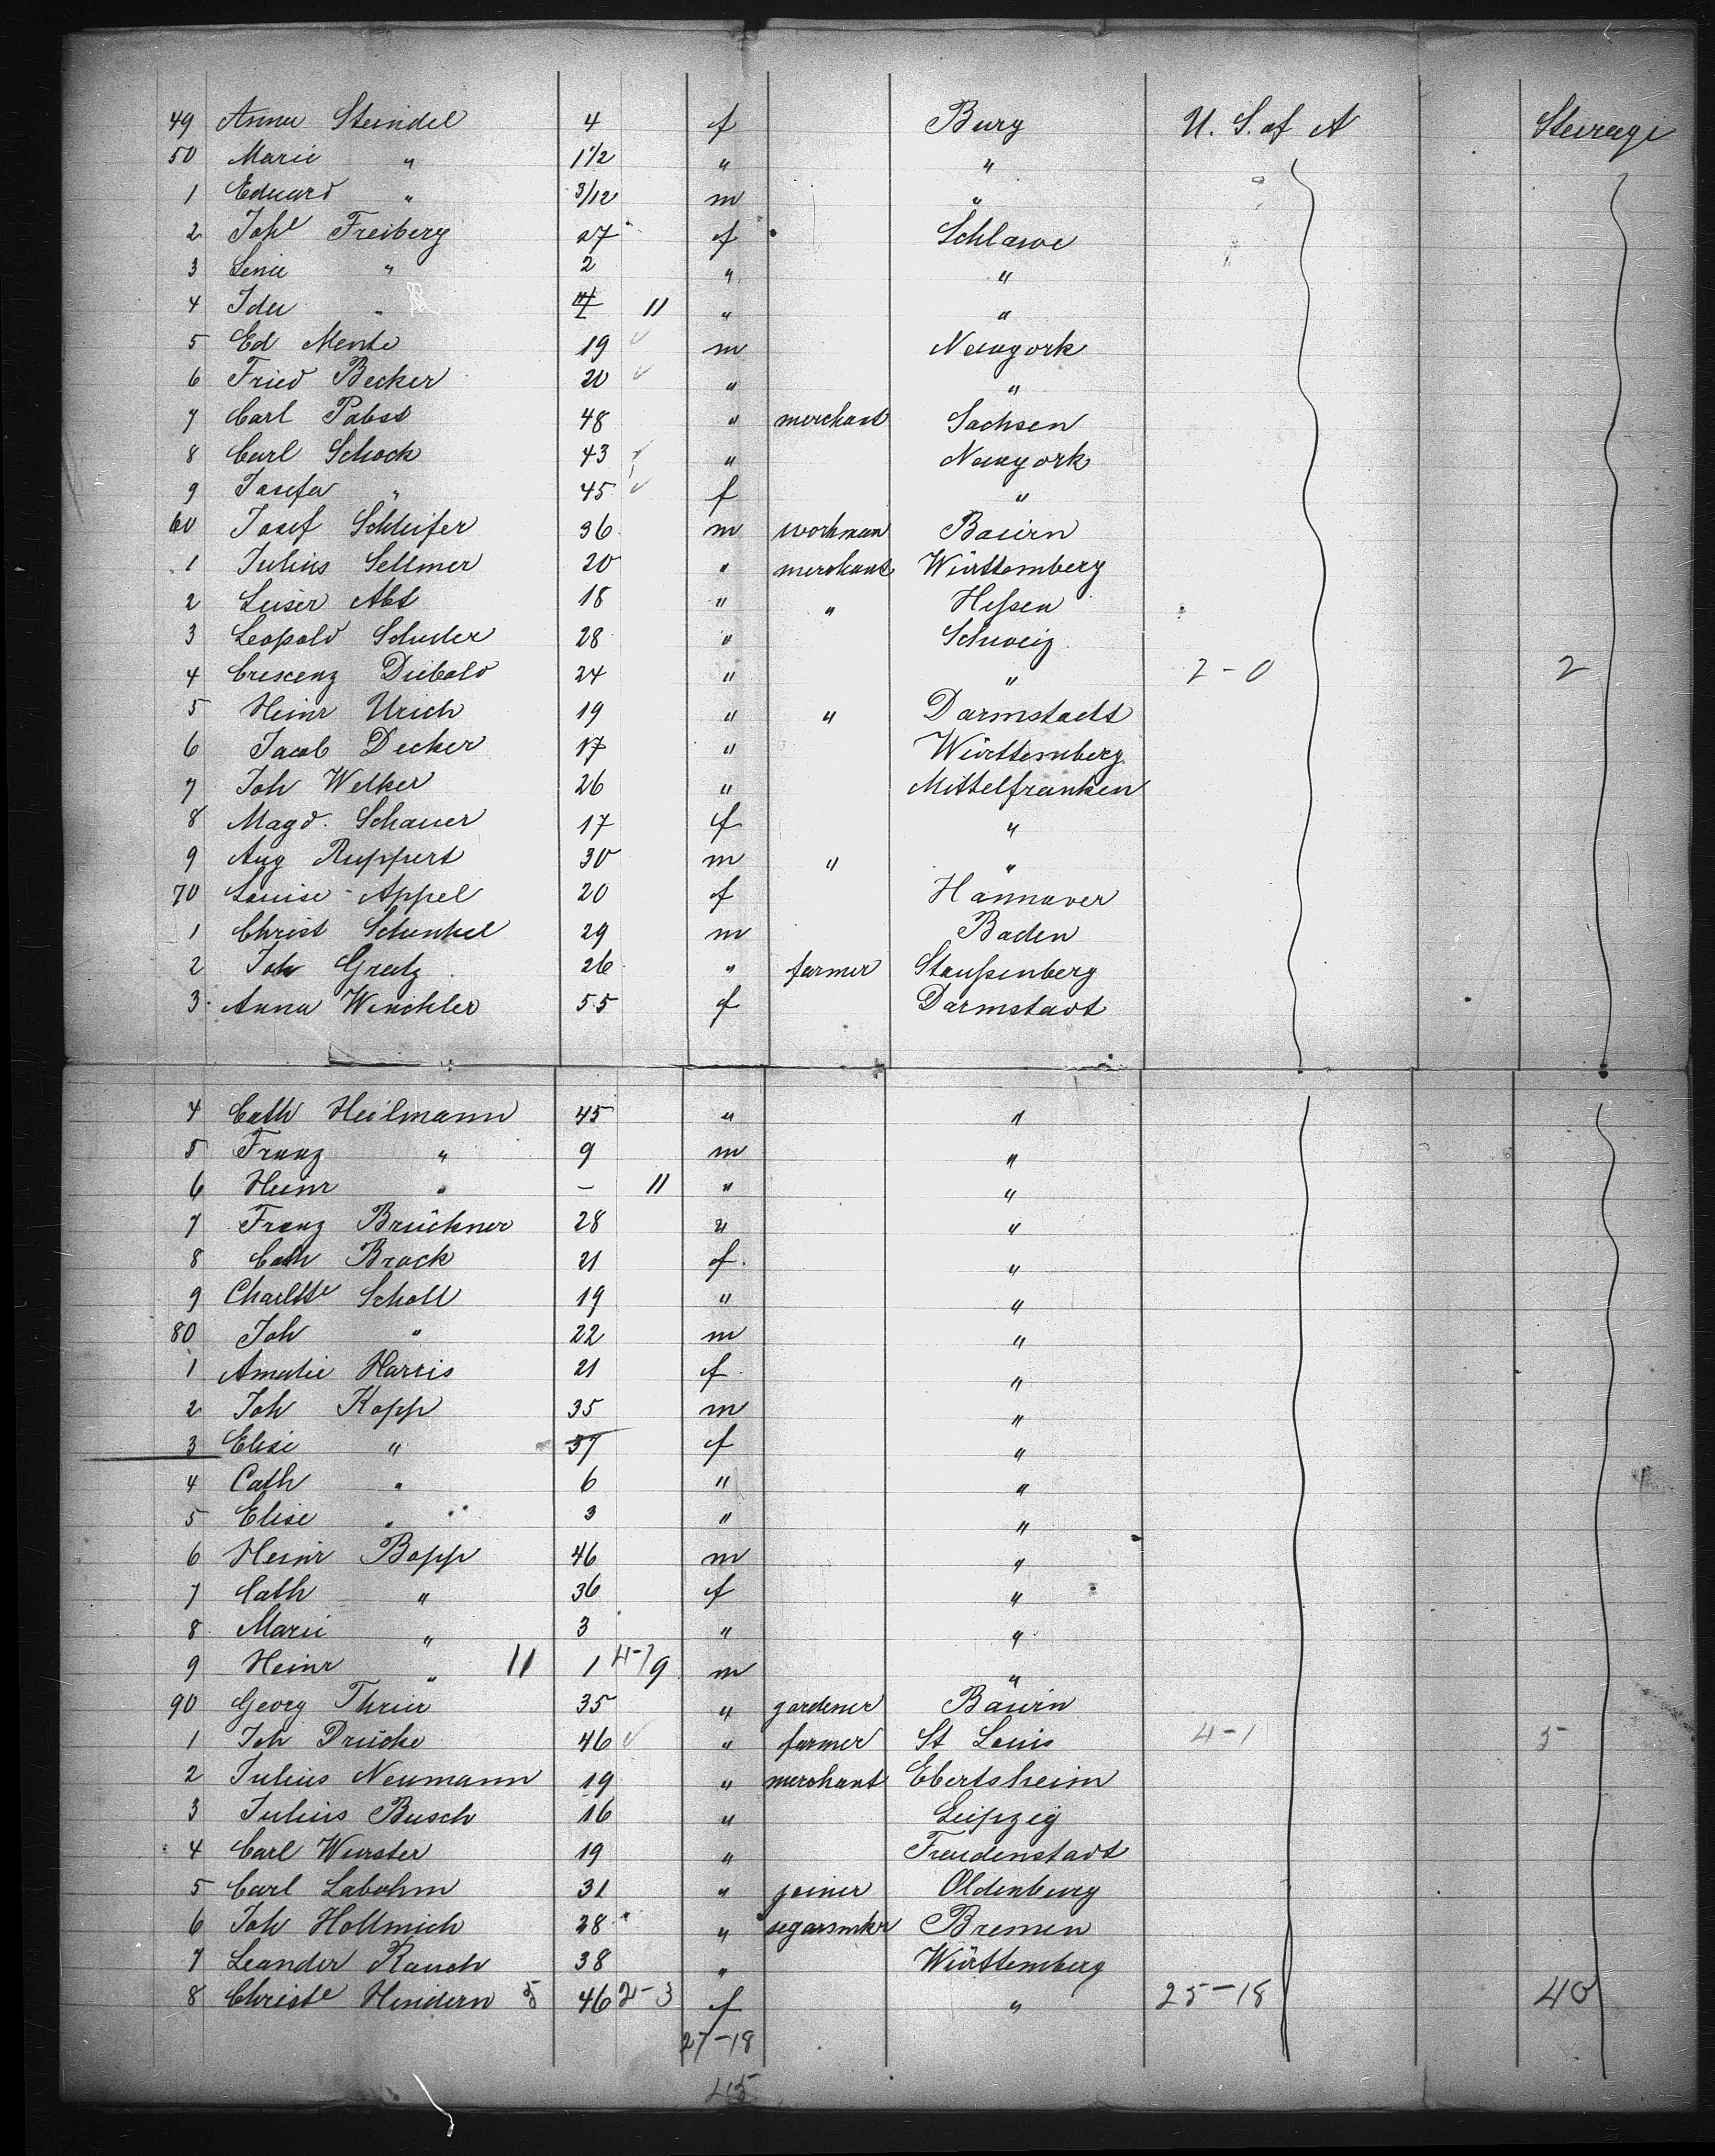 49 Anna Steindel 4 f Burg U. S. of A Steirage
50 Marie " 1 1/2 " "
1 Eduard " 3/12 m "
2 Joh^e Freiberg 27 f Schlawe
3 Lenie " 2 " "
4 Ida " 11 " "
5 Ed Mente 19 m Newyork
6 Fried Becker 20 " "
7 Carl Pabst 48 " merchant Sachsen
8 Carl Schock 43 " Newyork
9 Josefa " 45 f "
60 Josef Schleifer 36 m workman Baiern
1 Julius Sellmer 20 " merchant Württemberg
2 Leiser Abt 18 " " Hessen
3 Leopold Schuler 28 " Schweiz
4 Crescenz Diebold 24 " " 2-0 2
5 Heinr Urich 19 " " Darmstadt
6 Jacob Decker 17 " Württemberg
7 Joh Welker 26 " Mittelfranken
8 Magd. Schauer 17 f "
9 Aug Ruppert 30 m " "
70 Louise Appel 20 f Hannover
1 Christ Schenkel 29 m Baden
2 Joh Gratz 26 " farmer Staufsenberg
3 Anna Winckler 55 f Darmstadt
4 Cath Heilmann 45 " "
5 Franz " 9 m "
6 Heinr " - 11 " "
7 Franz Brückner 28 " "
8 Cath Brack 21 f. "
9 Charltte Scholl 19 " "
80 Joh " 22 m "
1 Amalie Harris 21 f "
2 Joh Kopp 35 m "
3 Elise " 37 f "
4 Cath " 6 " "
5 Elise " 3 " "
6 Heinr Bopp 46 m "
7 Cath " 36 f "
8 Marie " 3 " "
9 Heinr " 11 1 4-1 9 m "
90 Georg Threir 35 " gardener Baiern
1 Joh Drücke 46 " farmer St Louis 4-1 5
2 Julius Neumann 19 " merchant Ebertsheim
3 Julius Busch 16 " Leipzig
4 Carl Wurster 19 " Freudenstadt
5 Carl Labohm 31 " joiner Oldenburg
6 Joh Hollmich 28 " segarsmkr Bremen
7 Leander Rauch 38 " Württemberg
8 Christe Hindern 5 46 2-3 f " 25-18 40
27-18
45